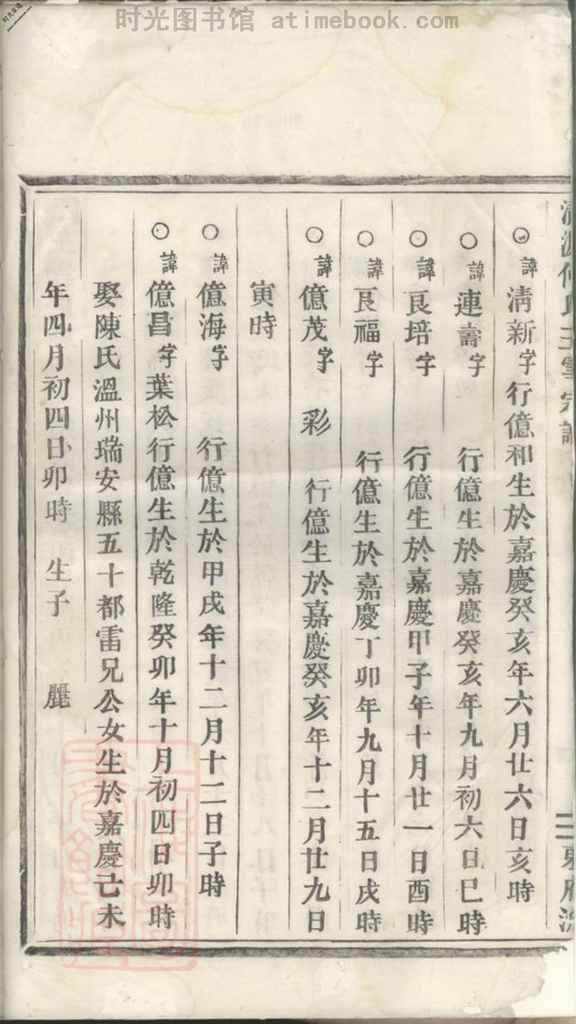 时光图书馆 atimebook.com
諱清新字行億和生於嘉慶癸亥年六月廿六日亥時
諱連壽字 行億生於嘉慶癸亥年九月初六日巳時
諱良培字 行億生於嘉慶甲子年十月廿一日酉時
諱良福字 行億生於嘉慶丁卯年九月十五日戌時
諱億茂字 彩 行億生於嘉慶癸亥年十二月廿九日
寅時
諱億海字 行億生於甲戌年十二月十二日子時
諱億昌字葉松行億生於乾隆癸卯年十月初四日卯時
娶陳氏溫州瑞安縣五十都雷兄公女生於嘉慶己未
年四月初四日卯時 生子 麗